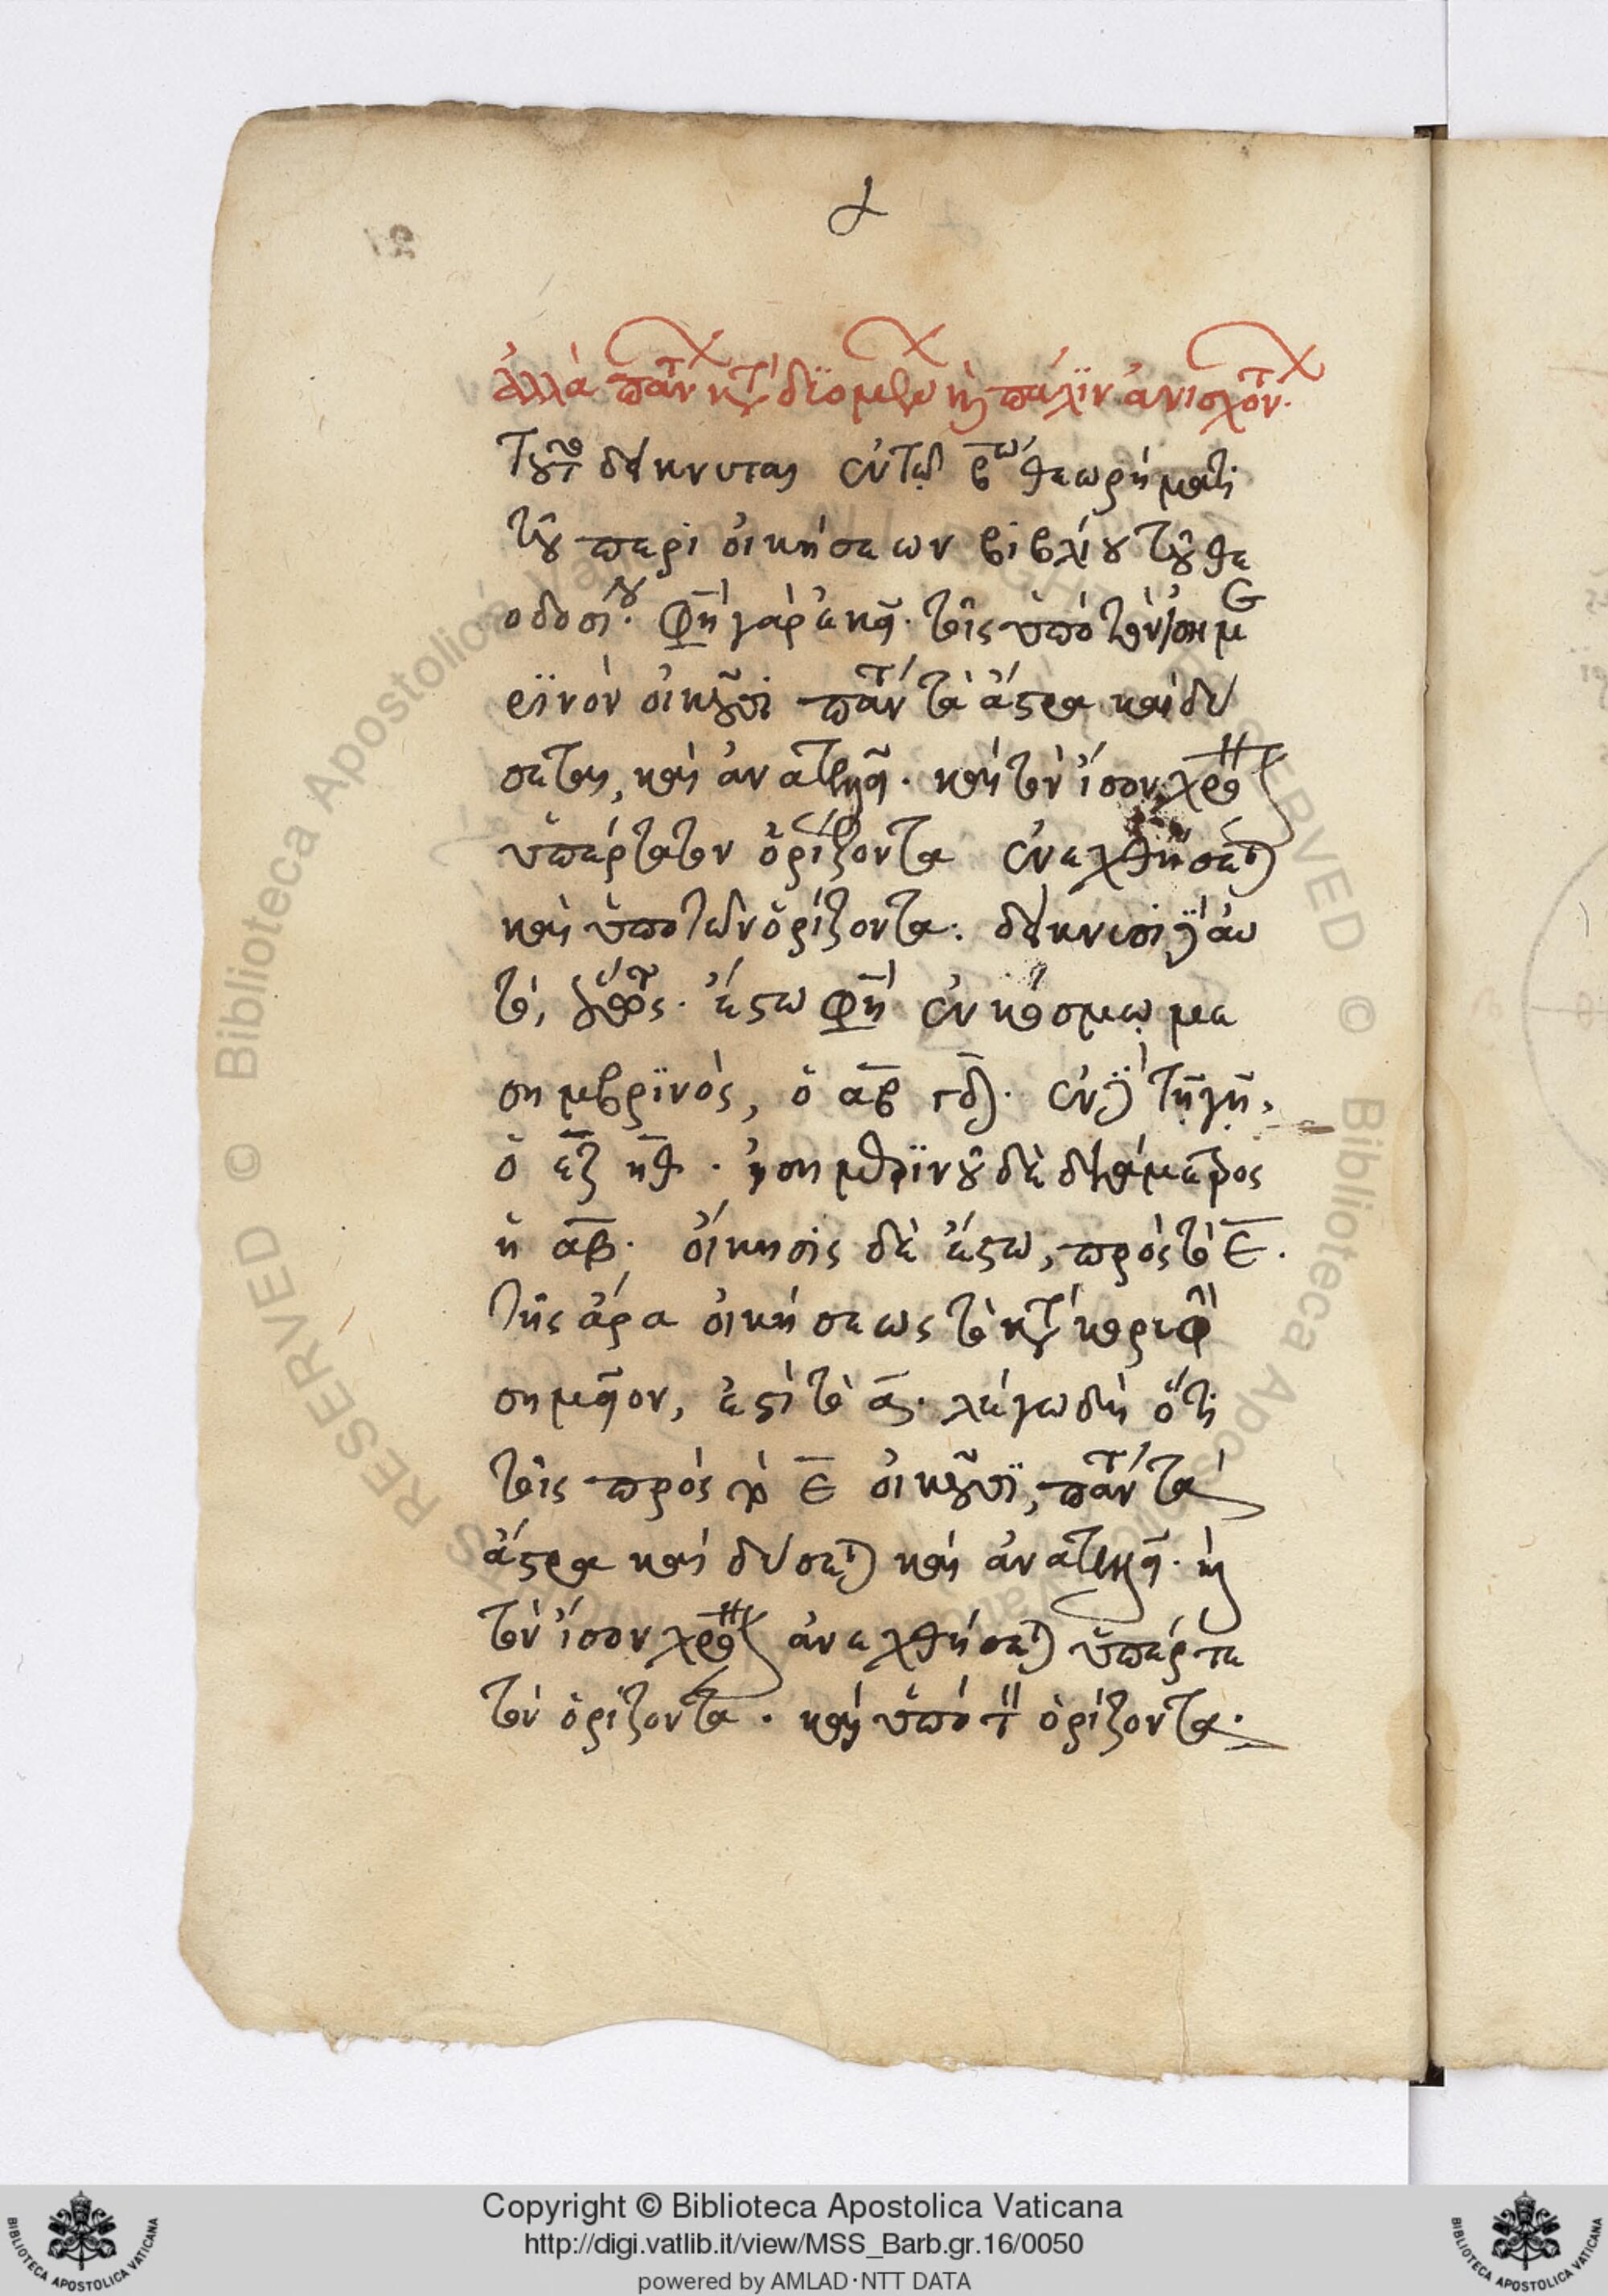 ἀλλὰ πάντα καταδυόμενα καὶ πάλιν ἀνίσχοντα.
τοῦτο δείκνυται ἐν τῷ β̅ω θεωρήματι
τοῦ περὶ οἰκήσεων βιβλίου τοῦ θε
οδοσίου. φησὶ γὰρ ἐκεῖ. τοῖς ὑπὸ τὸν ἰσημε
ρϊνὸν οἰκοῦσι πάντα τὰ ἄστρα καὶ δύ
σεται, καὶ ἀνατελεῖ. καὶ τὸν ἴσον χρόνον
ὑπέρ τε τὸν ὁρίζοντα ἐνεχθήσεται
καὶ ὑπὸ τὸν ὁρίζοντα. δείκνυσι δὲ αὐ
τὸ, οὕτως. ἔστω φησὶν ἐν κόσμῳ με
σημβρϊνὸς, ὁ α̅β̅ γ̅δ̅. ἐν δὲ τῇ γῇ,
ὁ ε̅ζ̅ η̅θ̅. ἰσημερϊνοῦ δὲ διάμετρος
ἡ α̅β̅. οἴκησις δὲ ἔστω, πρὸς τὸ ε̅.
τῆς ἄρα οἰκήσεως τὸ κατὰ κορυφὴν
σημεῖον, ἐστὶ τὸ α̅. λέγω δὴ ὅτι
τοῖς πρὸς τῷ ε̅ οἰκοῦσϊ, πάντα τὰ
ἄστρα καὶ δύσεται καὶ ἀνατελεῖ. καὶ
τὸν ἴσον χρόνον ἀνεχθήσεται ὑπέρ τε
τὸν ὁρίζοντα. καὶ ὑπὸ τὸν ὁρίζοντα.
Copyright © Biblioteca Apostolica Vaticana
http://digi.vatlib.it/view/MSS_Barb.gr.16/0050
powered by AMLAD·NTT DATA